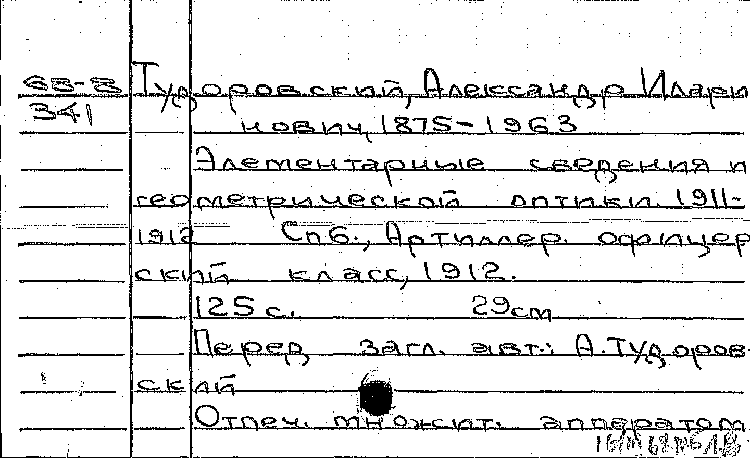 68-8 Тудоровский, Александр Илари
341 нович, 1875-1963
Элементарные сведения п
геометрической оптики. 1911-
1912 Спб., Артиллер. офицер
ский класс, 1912.
125 с. 29см
Перед загл. авт.: А.Тудоров-
ский
Отпеч. множит. апператом